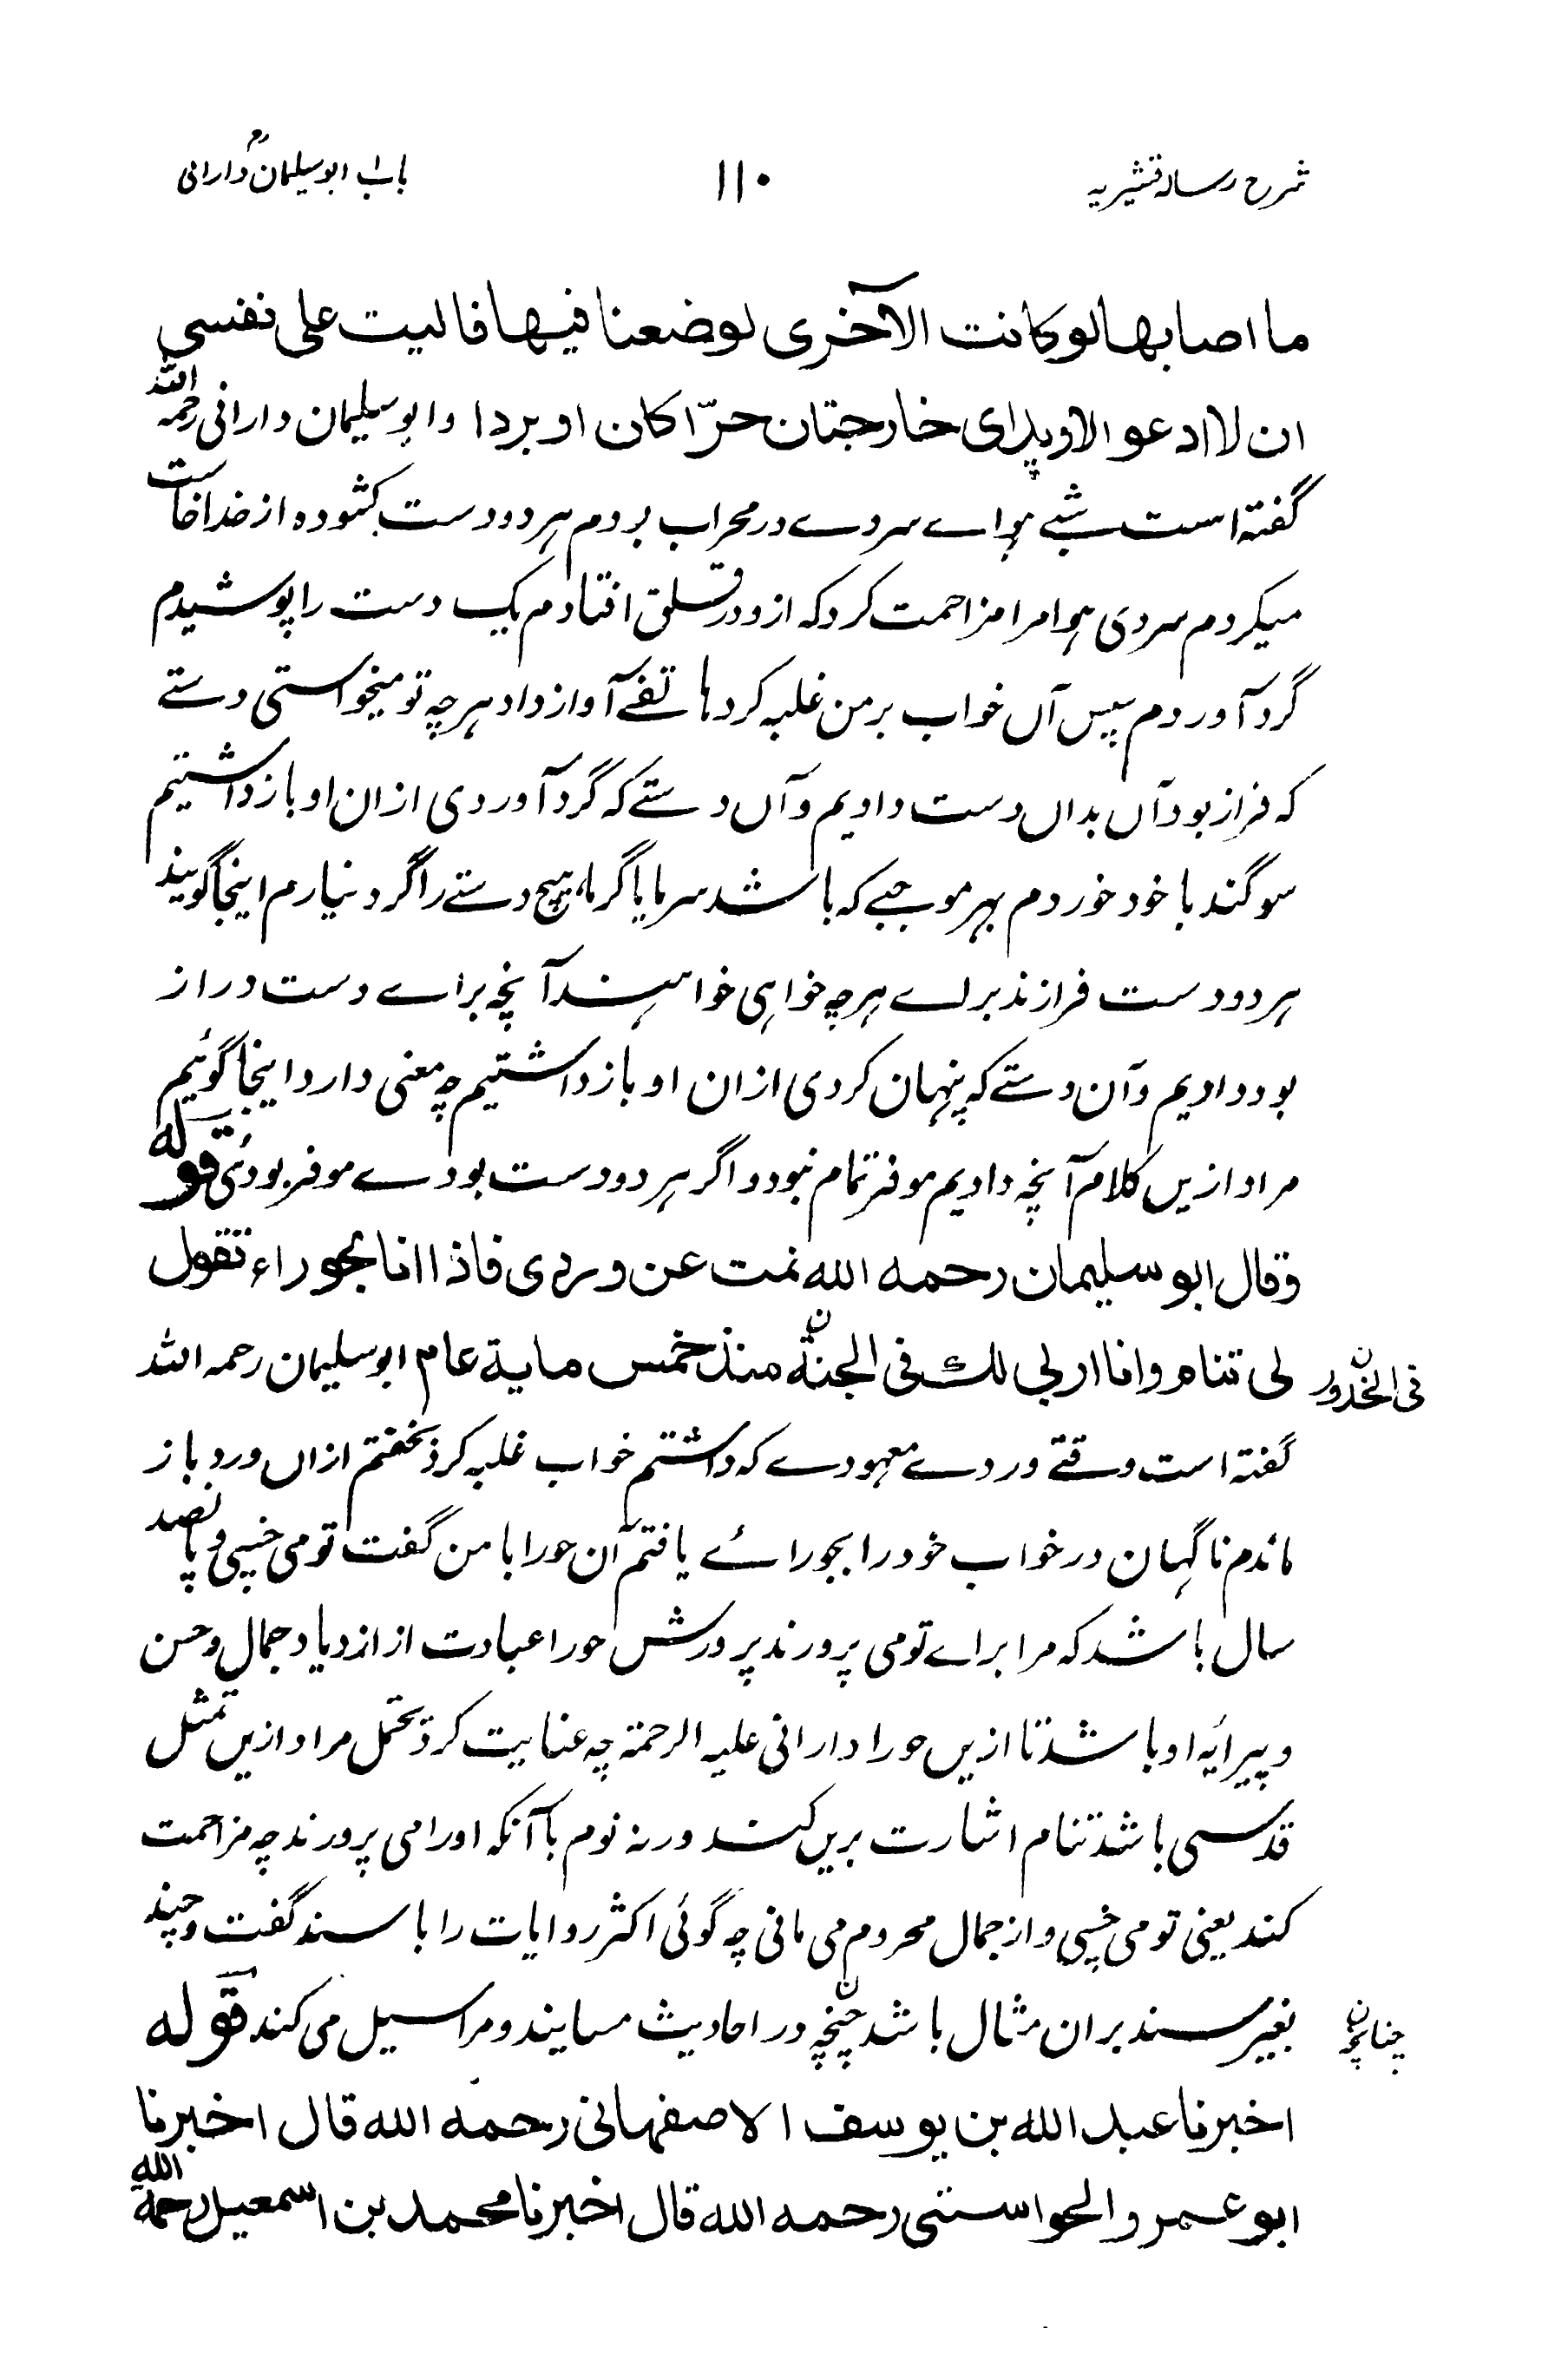 شرح رسالہ قشیریہ ۱۱۰ باب ابو سلیمانؒ دارانی
ما اصابها لو كانت الآخرى لوضعنا فيها فاليت على نفسي
ان لا ادعو الا ويداى خارجتان حرّا كان او بردا وابو سلیمان دارانی رحمہ اللہ
گفتہ است شبے ہواے سردے در محراب بردم ہر دو دست کشودہ از خدا خاست
میکردم سردی ہوا مرا مزاحمت کرد کہ ازو در قلق افتادم یک دست را پوشیدم
گرد آوردم سپس آں خواب بر من غلبہ کرد ہاتفے آواز داد ہر چہ تو میخواستی دستے
کہ فراز بود آں بداں دست دادیم و آں دستے کہ گرد آوردی از ان او باز داشتیم
سوگند با خود خوردم بہر موجبے کہ باشد سرما یا گرما، ہیچ دستے را گرد نیارم اینجا گویند
ہر دو دست فرازند براے ہر چہ خواہی خواہند آنچہ براے دست دراز
بود دادیم و آن دستے کہ پنہان کردی از ان او باز داشتیم چہ معنی دارد اینجا گوئیم
مراد ازیں کلام آنچہ دادیم موفر تمام نبود و اگر ہر دو دست بودے موفر بودئی قوله
وقال ابو سليمان رحمه الله نمت عن وردى فاذا انا بحوراء تقول
لى تنام وانا اربى لك فى الجنة ن منذ خمس ماية عام ابو سلیمان رحمہ اللہ
فی الخدور ن
گفتہ است وقتے وردے معہودے کہ داشتم خواب غلبہ کرد نخفتم ازاں ورد باز
ماندم ناگہان در خواب خود را بحورائے یافتم آن حورا با من گفت تو می خسپی و پانصد
سال باشد کہ مرا براے تو می پرورند پرورش حورا عبادت از ازدیاد جمال و حسن
و پیرایۂ او باشد تا ازیں حورا دارانی علیہ الرحمة چہ عنایت کرد تحمل مراد ازیں تمثل
قدسی باشد تنام اشارت بریں کند ورنہ نوم با آنکہ او را می پرورند چہ مزاحمت
کند یعنی تو می خسپی و از جمال محروم می مانی چہ گوئی اکثر روایات را با سند گفت و چند
بغیر سند بران مثال باشد چنچہ ن در احادیث مسانید و مراسیل می کند قوله
چنانچہ ن
اخبرنا عبد الله بن يوسف الاصفهانى رحمه الله قال اخبرنا
ابو عمرو الحواستى رحمه الله قال اخبرنا محمد بن اسمعيل رحمه الله